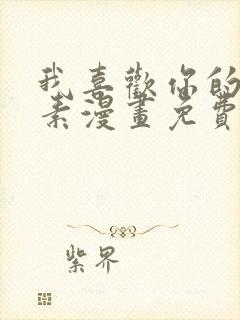 我喜歡你的
素漫畫免費
紫界